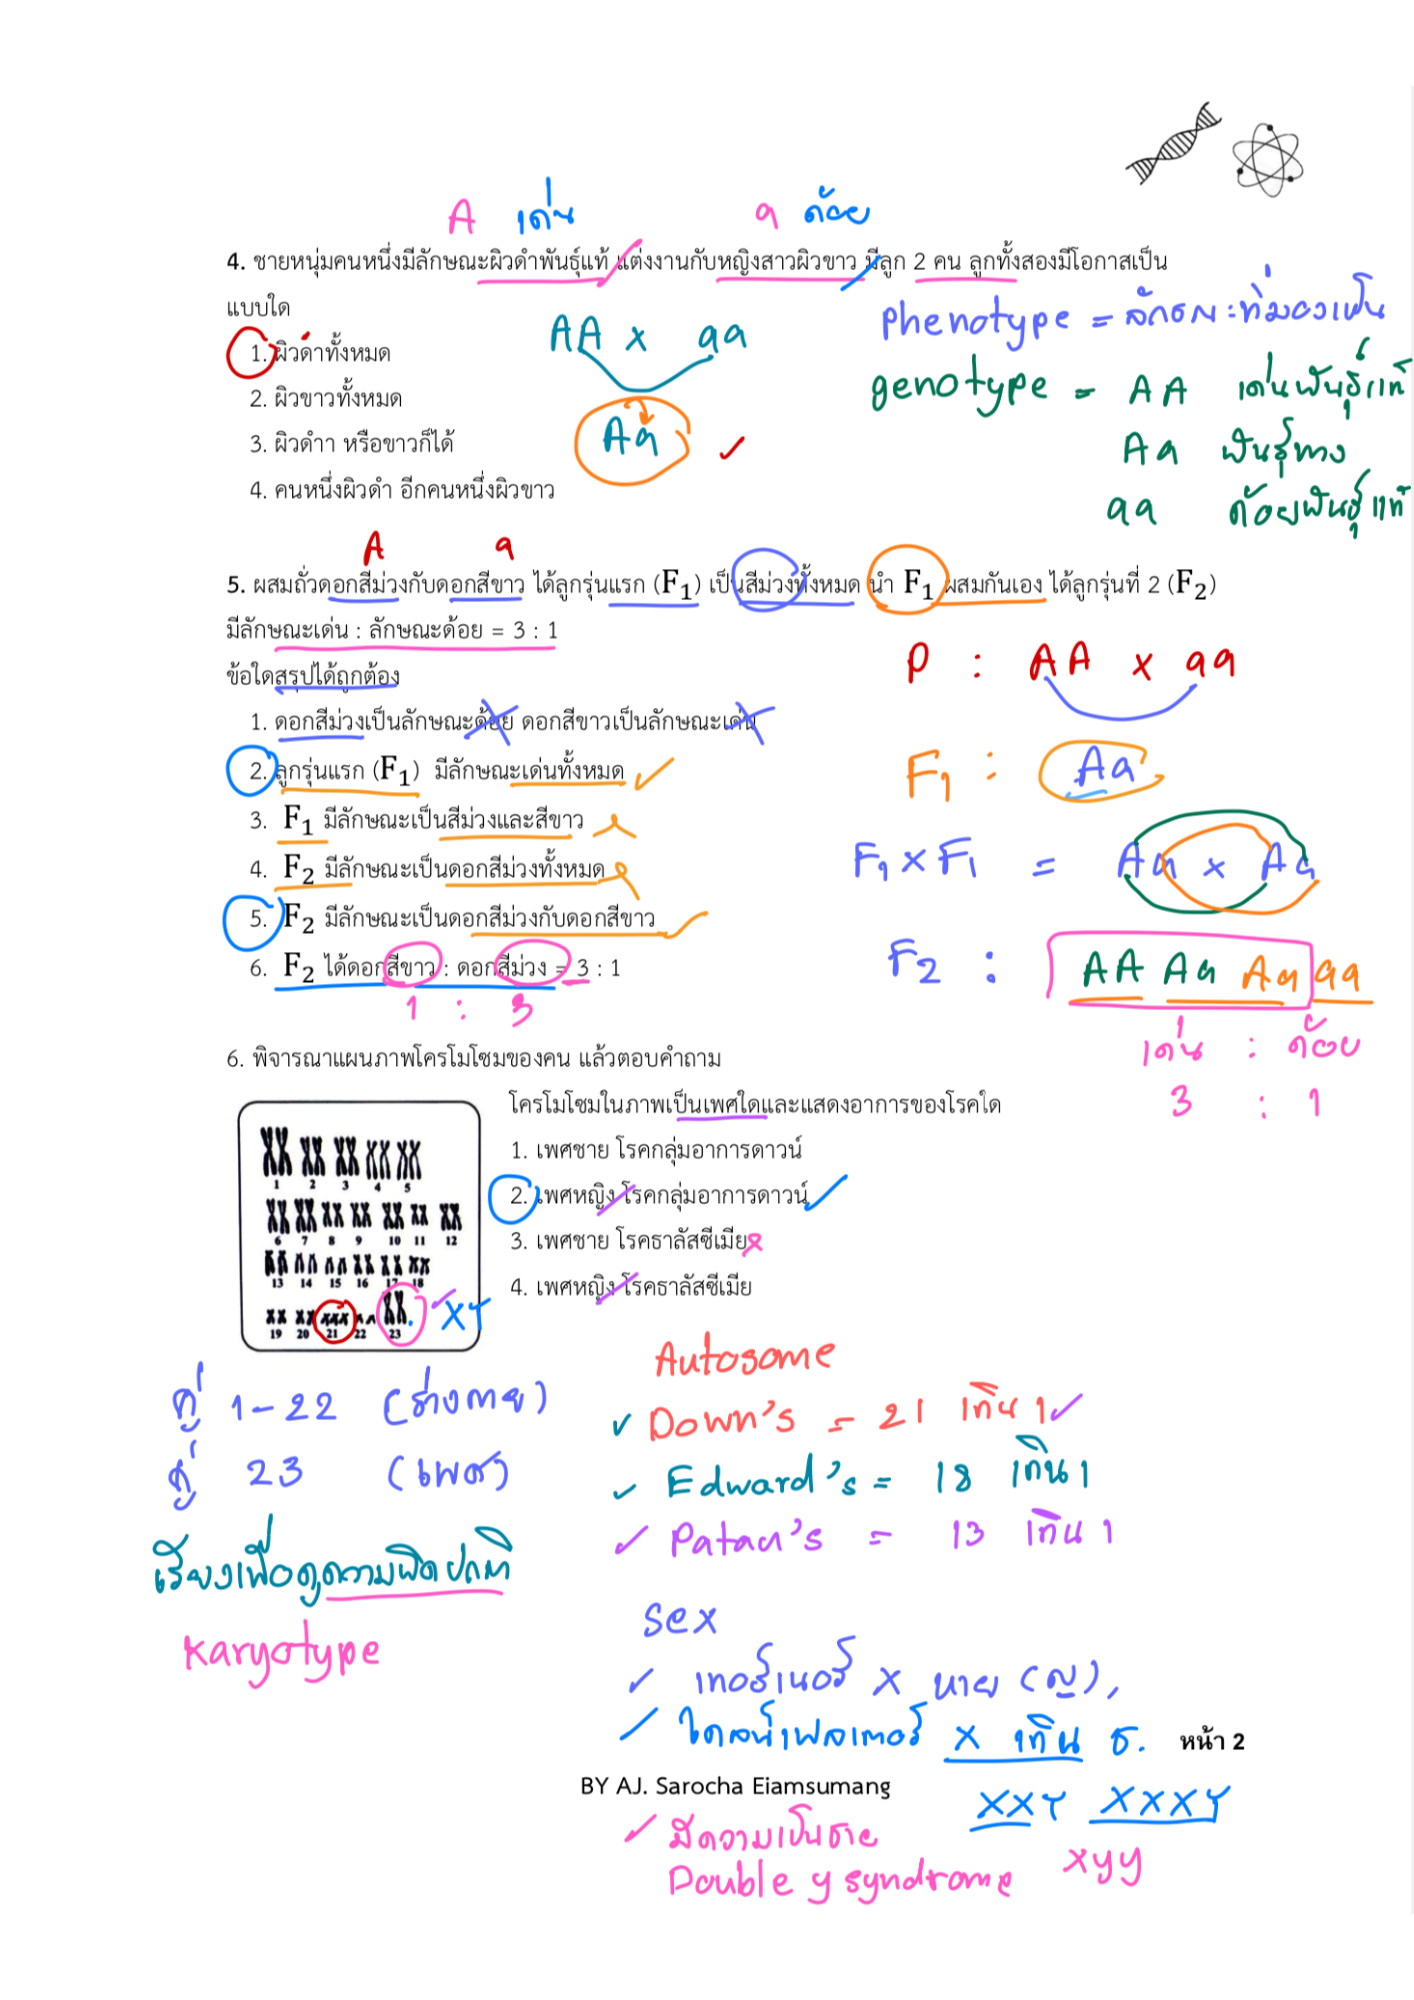 A เด่น a ด้อย
4. ชายหนุ่มคนหนึ่งมีลักษณะผิวดำพันธุ์แท้ แต่งงานกับหญิงสาวผิวขาว มีลูก 2 คน ลูกทั้งสองมีโอกาสเป็น
แบบใด
Phenotype = ลักษณะที่มองเห็น
1. ผิวดำทั้งหมด
AA x aa
genotype = AA เด่นพันธุ์แท้
2. ผิวขาวทั้งหมด
3. ผิวดำา หรือขาวก็ได้
Aa
Aa พันธุ์ทาง
4. คนหนึ่งผิวดำ อีกคนหนึ่งผิวขาว
aa ด้อยพันธุ์แท้
A a
5. ผสมถั่วดอกสีม่วงกับดอกสีขาว ได้ลูกรุ่นแรก (F1) เป็นสีม่วงทั้งหมด นำ F1 ผสมกันเอง ได้ลูกรุ่นที่ 2 (F2)
มีลักษณะเด่น : ลักษณะด้อย = 3 : 1
P : AA x aa
ข้อใดสรุปได้ถูกต้อง
1. ดอกสีม่วงเป็นลักษณะด้อย ดอกสีขาวเป็นลักษณะเด่น
2. ลูกรุ่นแรก (F1) มีลักษณะเด่นทั้งหมด
F1 : Aa
3. F1 มีลักษณะเป็นสีม่วงและสีขาว
4. F2 มีลักษณะเป็นดอกสีม่วงทั้งหมด
F1 x F1 = Aa x Aa
5. F2 มีลักษณะเป็นดอกสีม่วงกับดอกสีขาว
6. F2 ได้ดอกสีขาว : ดอกสีม่วง = 3 : 1
F2 : AA Aa Aa aa
1 : 3
เด่น : ด้อย
3 : 1
6. พิจารณาแผนภาพโครโมโซมของคน แล้วตอบคำถาม
โครโมโซมในภาพเป็นเพศใดและแสดงอาการของโรคใด
1. เพศชาย โรคกลุ่มอาการดาวน์
2. เพศหญิง โรคกลุ่มอาการดาวน์
3. เพศชาย โรคธาลัสซีเมีย
4. เพศหญิง โรคธาลัสซีเมีย
1 2 3 4 5
6 7 8 9 10 11 12
13 14 15 16 17 18
19 20 21 22 23
XY
คู่ 1-22 (ร่างกาย)
คู่ 23 (เพศ)
เรียงเพื่อดูความผิดปกติ
Karyotype
Autosome
Down's = 21 เกิน 1
Edward's = 18 เกิน 1
Patau's = 13 เกิน 1
Sex
เทอร์เนอร์ X หาย (ญ),
ไคลน์เฟลเตอร์ X เกิน ช.
หน้า 2
BY AJ. Sarocha Eiamsumang
XXY XXXY
มีความเป็นชาย
Double y syndrome xyy